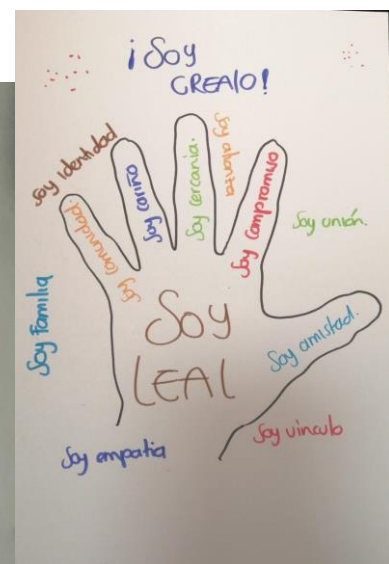 ¡Soy
CREALO!
Soy identidad
Soy comunidad.
Soy cariño
Soy cercanía.
Soy alianza
Soy compromiso
Soy unión.
Soy Familia
Soy
LEAL
Soy amistad.
Soy empatia
Soy vinculo